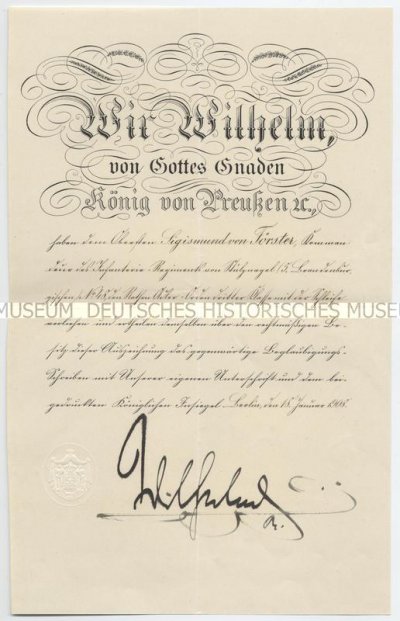 Wir Wilhelm,
von Gottes Gnaden
König von Preußen ꝛc.,
haben dem Obersten Sigismund von Förster, Komman-
deur des Infanterie-Regiments von Stülpnagel (5. Brandenbur-
gischen) No 48, den Rothen Adler-Orden dritter Klasse mit der Schleife
MUSEUM DEUTSCHES HISTORISCHES MUSEUM
verliehen und ertheilen demselben über den rechtmäßigen Be-
sitz dieser Auszeichnung das gegenwärtige Beglaubigungs-
Schreiben mit Unserer eigenen Unterschrift und dem bei-
gedruckten Königlichen Insiegel. Berlin, den 18. Januar
Wilhelm
R.